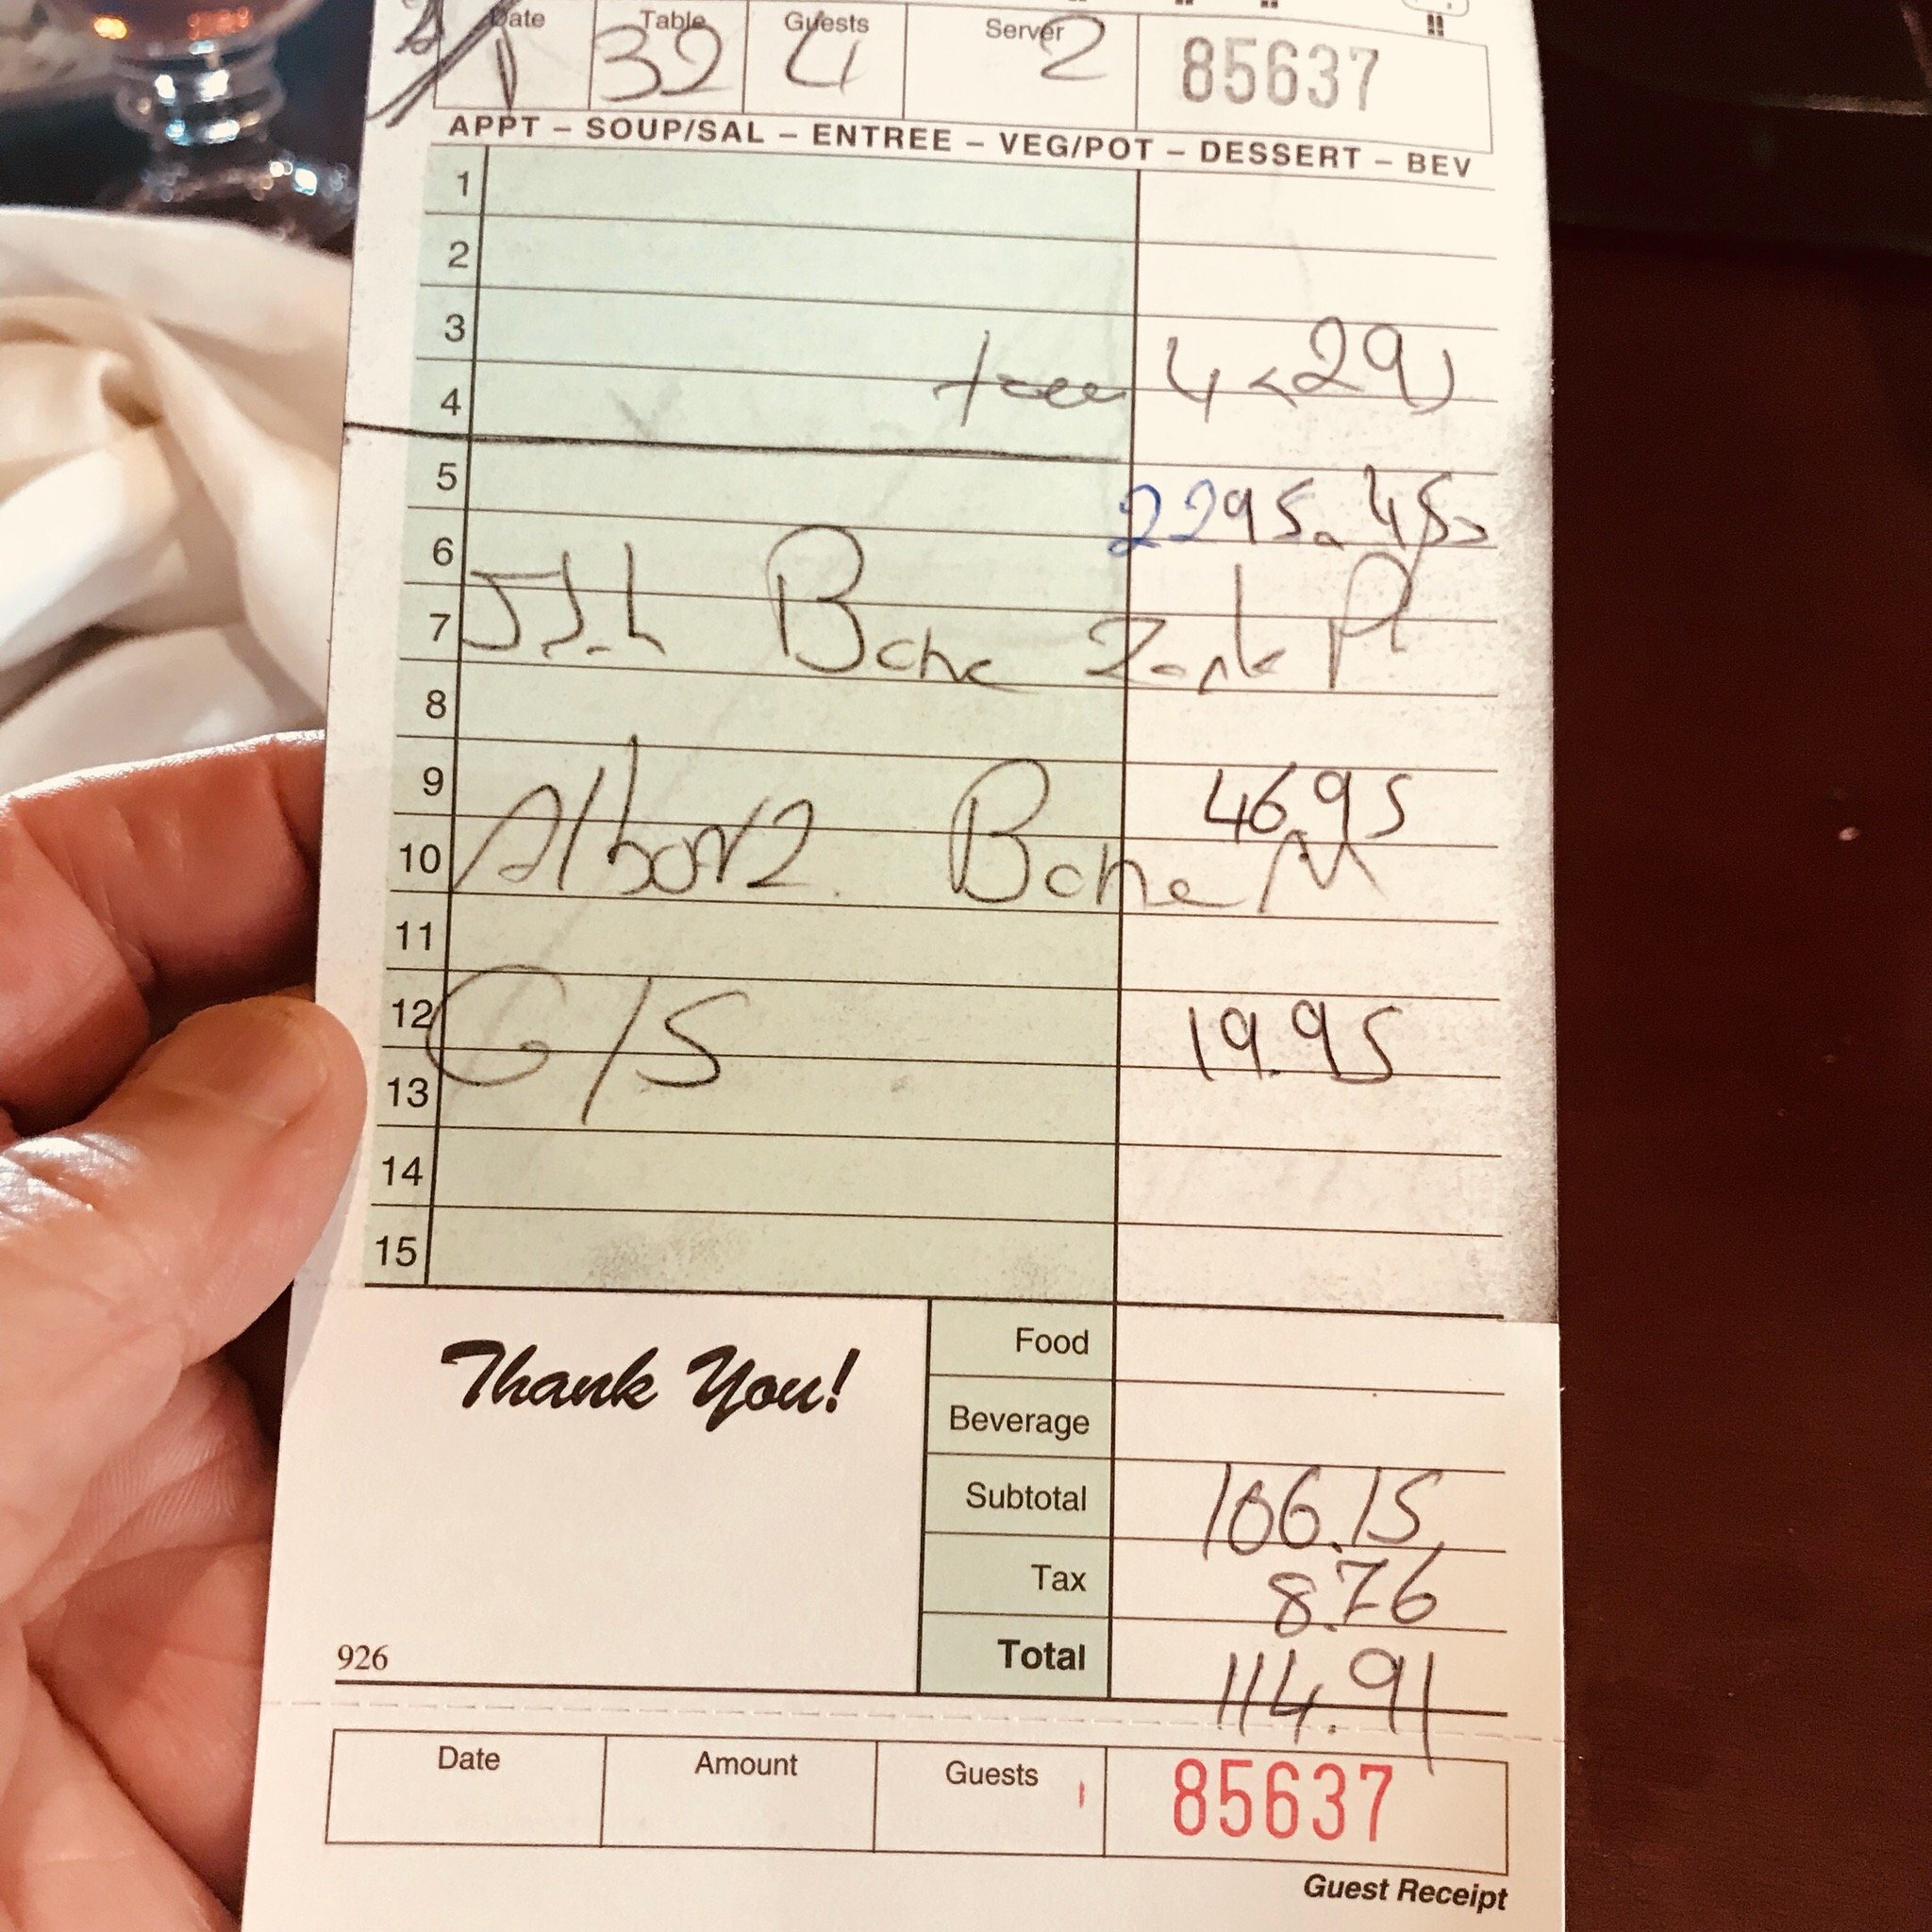 Date Table Guests Server
32 4 2 85637
APPT – SOUP/SAL – ENTREE – VEG/POT – DESSERT – BEV
1
2
3
4
5
2295
6
7
8
9 46.95
10 Alborz Bone
11
12 G/S 19.95
13
14
15
Thank You!
Food
Beverage
Subtotal 106.15
Tax 8.76
926 Total 114.91
Date Amount Guests 85637
Guest Receipt